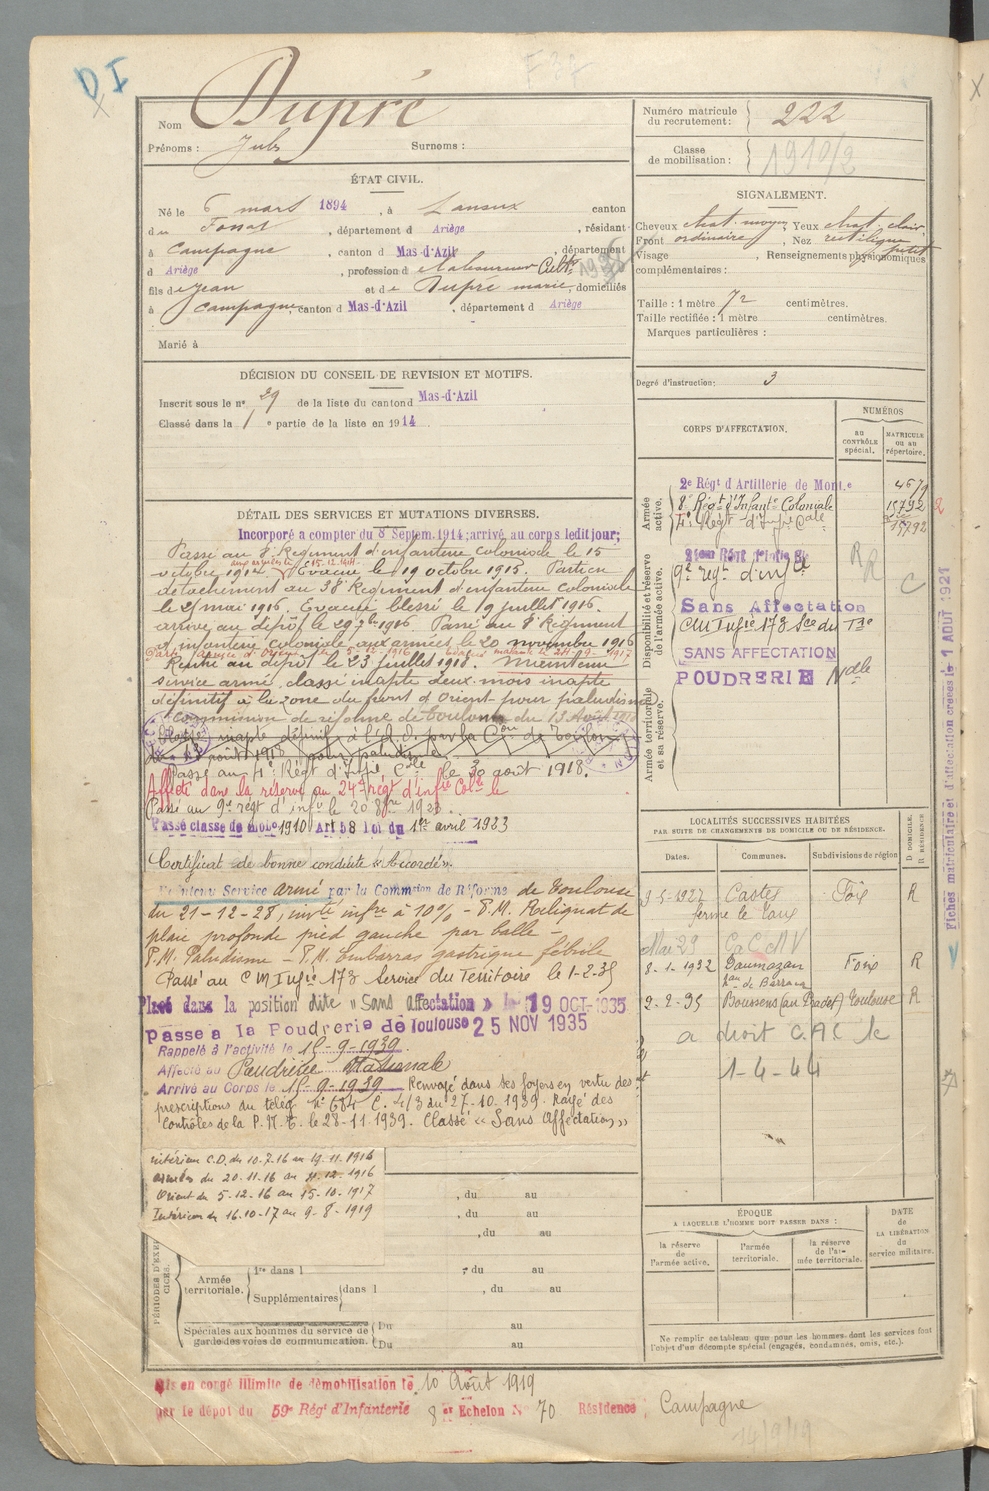 D I
F 37
Nom Dupré
Prénoms : Jules Surnoms :
Numéro matricule du recrutement : 222
Classe de mobilisation : 1910/2
ÉTAT CIVIL.
Né le 6 mars 1894, à Lanoux canton
du Fossat, département d Ariège, résidant
à Campagne, canton d Mas-d'Azil, département
d Ariège, profession d Cult.
fils de Jean et de Dupré marie, domiciliés
à Campagne, canton d Mas-d'Azil, département d Ariège
Marié à
SIGNALEMENT.
Cheveux chat. moyen, Yeux chat. clair
Front ordinaire, Nez rectiligne
Visage, Renseignements physionomiques petit
complémentaires :
Taille : 1 mètre 72 centimètres.
Taille rectifiée : 1 mètre centimètres.
Marques particulières :
Degré d'instruction : 3
DÉCISION DU CONSEIL DE REVISION ET MOTIFS.
Inscrit sous le n° 29 de la liste du canton d Mas-d'Azil
Classé dans la 1e partie de la liste en 1914
DÉTAIL DES SERVICES ET MUTATIONS DIVERSES.
Incorporé a compter du 8 Septem. 1914; arrivé au corps ledit jour;
Passé au 8e Régiment d'infanterie coloniale le 15
octobre 1914. aux armées le 15.12.1914 Evacué le 19 octobre 1915. Parti en
détachement au 38e Régiment d'infanterie coloniale
le 21 mai 1916. Evacué blessé le 19 juillet 1916.
arrivé au dépôt le 29 7bre 1916. Passé au 8e Régiment
d'infanterie coloniale aux armées le 20 novembre 1916
Parti Armée d'Orient le 5-12-1916
Rentré au dépôt le 23 juillet 1918. Maintenu
service armé, classé inapte deux mois inapte
définitif à la zone du front d'Orient pour paludisme
Commission de réforme de Toulon du 13 Août 1918
Classé inapte définitif à l'A.O. par la Con de Toulon
du 13 août 1918 pour paludisme
Passé au 4e Régt d'Infie Cale le 30 août 1918.
Affecté dans la réserve au 24e régt d'infie Colle le
Passé au 9e régt d'infie le 20 8bre 1923.
Passé classe de mobon 1910 Art 58 loi du 1er avril 1923
Certificat de bonne conduite "Accordé".
Maintenu Service armé par la Commsion de Réforme de Toulouse
du 21-12-28, invté infre à 10% - P.M. Reliquat de
plaie profonde pied gauche par balle -
P.M. Paludisme - P.M. Embarras gastrique fébrile
Passé au C M Infie 173 Service du Territoire le 1-2-35
Placé dans la position dite "Sans affectation" le 19 OCT 1935
Passé a la Poudrerie de Toulouse 25 NOV 1935
Rappelé à l'activité le 15-9-1939
Affecté au Poudrerie Nationale
Arrivé au Corps le 15-9-1939 Renvoyé dans ses foyers en vertu des
prescriptions du télég n° 684 C. 4/3 du 27-10-1939. Rayé des
contrôles de la P.N.T. le 28-11-1939. Classé "Sans Affectation"
intérieur C.D. du 10.7.16 au 19.11.1916
armées du 20.11.16 au 4.12.1916
Orient du 5.12.16 au 15-10-1917
Intérieur du 16-10-17 au 9-8-1919
CORPS D'AFFECTATION.
NUMÉROS
au CONTRÔLE spécial.
MATRICULE ou au répertoire.
Armée active.
2e Régt d'Artillerie de Mont.e 4579
8e Régt d'Infante Coloniale 15792
4e Régt d'Infie Cale 15792
2
Disponibilité et réserve de l'armée active.
9e régt d'infie
RR
C
Sans Affectation
CM Infie 173 Sce du Tre
SANS AFFECTATION
POUDRERIE Nale
Armée territoriale et sa réserve.
LOCALITÉS SUCCESSIVES HABITÉES
PAR SUITE DE CHANGEMENTS DE DOMICILE OU DE RÉSIDENCE.
Dates. Communes. Subdivisions de région
D DOMICILE. R RÉSIDENCE
9-5-1927 Castex Foix R
ferme le Caux
Mai 29 Ca C M V
8-1-1932 Daumazan Foix R
2-2-35 Boussens (au Pradet) Toulouse R
a droit C.A.C. le
1-4-44
ÉPOQUE
A LAQUELLE L'HOMME DOIT PASSER DANS :
la réserve de l'armée active.
l'armée territoriale.
la réserve de l'armée territoriale.
DATE de LA LIBÉRATION du service militaire.
Ne remplir ce tableau que pour les hommes dont les services font
l'objet d'un décompte spécial (engagés, condamnés, omis, etc.).
, du au
, du au
, du au
PÉRIODES D'EXERCICES.
Armée territoriale.
1re dans l du au
Supplémentaires dans l , du au
Spéciales aux hommes du service de garde des voies de communication.
Du au
Du au
Mis en congé illimité de démobilisation le 10 Août 1919
par le dépôt du 59e Régt d'Infanterie 8e Echelon N° 70 Résidence : Campagne
14/9/19
Fiches matriculaire et d'affectation créées le 1 AOUT 1921